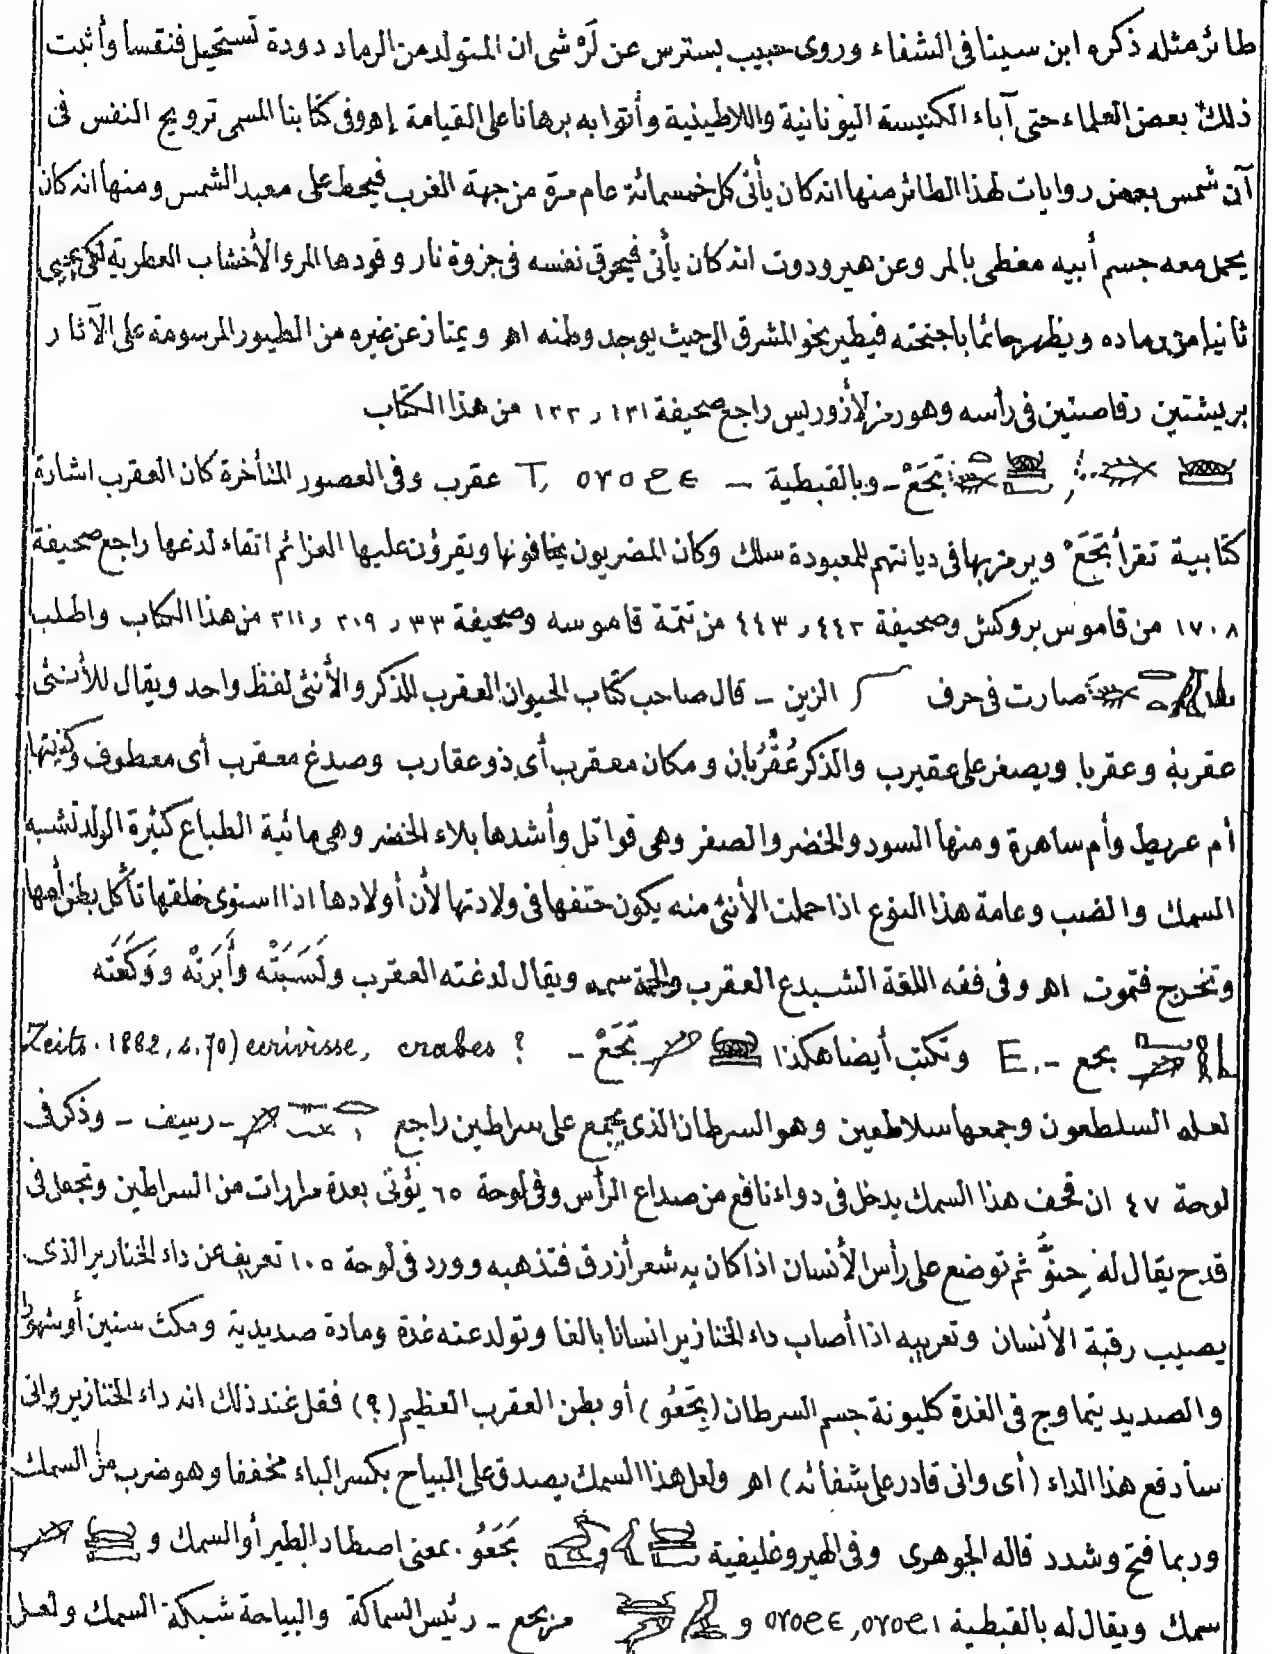 طائر مثله ذكره ابن سينا فى الشفاء وروى حبيب بسترس عن لَرْشى ان المتولد من الرماد دودة تستحيل فنقسا وأثبت
ذلك بعض العلماء حتى آباء الكنيسة اليونانية واللاطينية وأتوا به برهانا على القيامة اهـ وفى كتابنا المسمى ترويح النفس فى
آن شمس بعض روايات لهذا الطائر منها انه كان يأتى كل خمسمائة عام مرة من جهة الغرب فيحط على معبد الشمس ومنها انه كان
يحمل معه جسم أبيه مغطى بالمر وعن هيرودوت انه كان يأتى فيحرق نفسه فى جزوة نار وقودها المر والأخشاب العطرية لكى يحيى
ثانيا من رماده ويظهر حائما باجنحته فيطير نحو المشرق الى حيث يوجد وطنه اهـ ويمتاز عن غيره من الطيور المرسومة على الآثار
بريشتين رقاصتين فى رأسه وهو رمز لأزوريس راجع صحيفة ١٣١ ر ١٣٢ من هذا الكتاب
بَحَعْ ـ وبالقبطية ـ T, ογοϩε عقرب وفى العصور المتأخرة كان العقرب اشارة
كتابية تقرأ بَحَعْ ويرمز بها فى ديانتهم للمعبودة سلك وكان المصريون يخافونها ويقرؤن عليها العزائم اتقاء لدغها راجع صحيفة
١٧٠٨ من قاموس بروكش وصحيفة ٤٤٢ ر ٤٤٣ من تتمة قاموسه وصحيفة ٣٣ ر ٢٠٩ ر ٢١١ من هذا الكتاب واطلب
صارت فى حرف الزين ـ قال صاحب كتاب الحيوان العقرب للمذكر والأنثى لفظ واحد ويقال للأنثى
عقربة وعقربا ويصغر على عقيرب والذكر عُقْرُبان ومكان معقرب أى ذو عقارب وصدغ معقرب أى معطوف وكنيتها
أم عريط وأم ساهرة ومنها السود والخضر والصفر وهى قواتل وأشدها بلاء الخضر وهى مائية الطباع كثيرة الولد تشبه
السمك والضب وعامة هذا النوع اذا حملت الأنثى منه يكون حتفها فى ولادتها لأن أولادها اذا استوى خلقها تأكل بطن أمها
وتخرج فتموت اهـ وفى فقه اللغة الشبدع العقرب والحمة سمه ويقال لدغته العقرب ولَسَبَتْه وأَبَرَتْه ووَكَعَتْه
بحع ـ E. وتكتب أيضا هكذا بَحَعْ ـ Zeits. 1882, s. 70) ecrivisse, crabes ?
لعله السلطعون وجمعها سلاطعين وهو السرطان الذى يجمع على سراطين راجع ـ رسيف ـ وذكر فى
لوحة ٤٧ ان قحف هذا السمك يدخل فى دواء نافع من صداع الرأس وفى لوحة ٦٥ يؤتى بعدة مرارات من السراطين وتجعل فى
قدح يقال له حنوّ ثم توضع على رأس الأنسان اذا كان به شعر أزرق فتذهبه وورد فى لوحة ١٠٥ تعريف عن داء الخنازير الذى
يصيب رقبة الأنسان وتعريبه اذا أصاب داء الخنازير انسانا بالغا وتولد عنه غدة ومادة صديدية ومكث سنين أو شهورا
والصديد يتماوج فى الغدة كليونة جسم السرطان (بَحَعُو) أو بطن العقرب العظيم (؟) فقل عند ذلك انه داء الخنازير وانى
سأدفع هذا الداء (أى وانى قادر على شفائه) اهـ ولعل هذا السمك يصدق على البياح بكسر الباء مخففا وهو ضرب من السمك
وربما فتح وشدد قاله الجوهرى وفى الهيروغليفية و بَحَعُو . بمعنى اصطاد الطير أو السمك و
سمك ويقال له بالقبطية ογοϩε, ογοϩι و مر بحع ـ رئيس السماكة والبياحة شبكة السمك ولعل